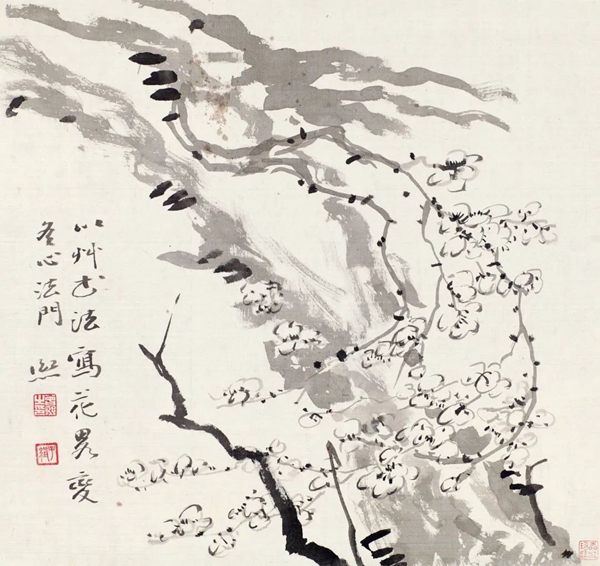 以艸書法寫花畧變
冬心法門 熙